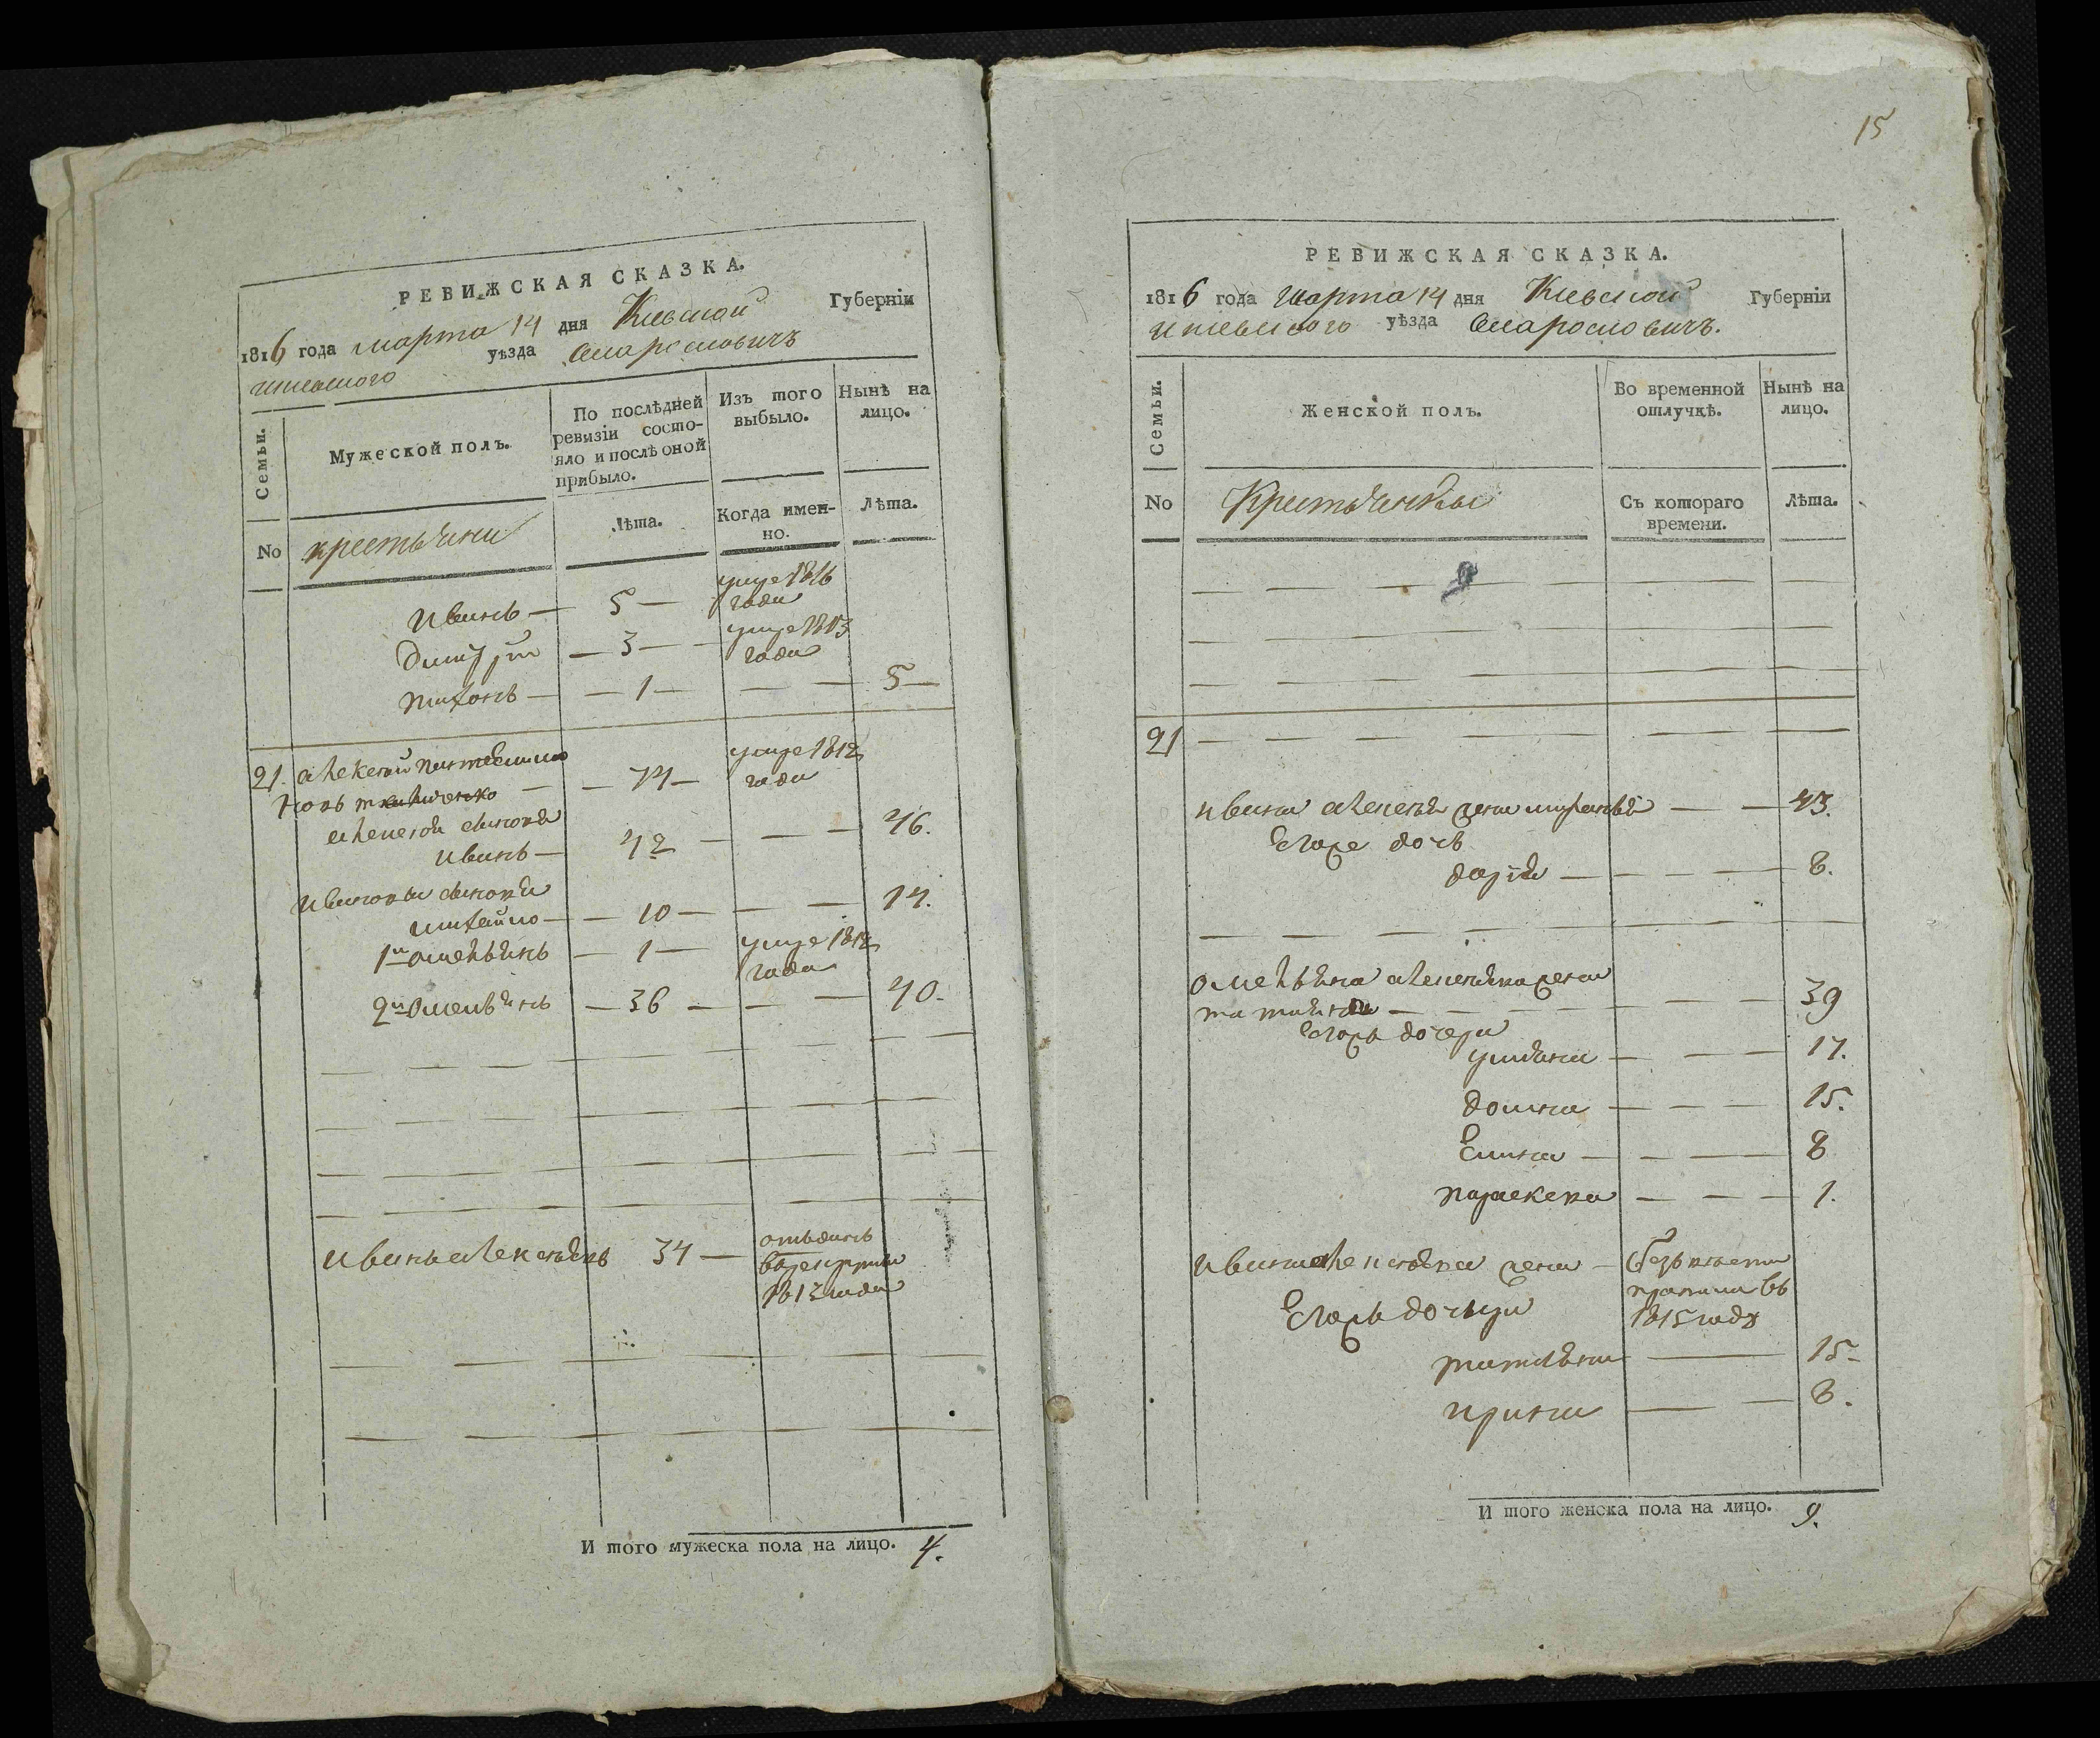 РЕВИЖСКАЯ СКАЗКА.
1816 года марта 14 дня Киевской Губерніи
уѣзда
Семьи.
Мужеской полъ.
По послѣдней ревизіи состо-
яло и послѣ оной
прибыло.
Изъ того
выбыло.
Нынѣ на
лицо.
No
крестьяни
Лѣта.
Когда имен-
но.
Лѣта.
Иванъ — 5 — умре 1816
года
Дмитрій — 3 — умре 1813
года
Тихонъ — 1 — 5
21. Алексей
74 — умре 1812
года
Алексея сынови
Иванъ — 42 — 46.
Ивановы сынови
Михайло — 10 — 14.
1й Омельянъ — 1 — умре 1812
года
2й Омельянъ — 36 — 40.
Иванъ Алексѣевъ 34 — отъданъ
в рекруты
1813 года
И того мужеска пола на лицо. 4.
15
РЕВИЖСКАЯ СКАЗКА.
1816 года Марта 14 дня Киевской Губерніи
уѣзда
Семьи.
Женской полъ.
Во временной
отлучкѣ.
Нынѣ на
лицо.
No
Крестьянки
Съ котораго
времени.
Лѣта.
21
Ивана Алексея жена — 43.
Єгоже дочь
Дарія — 8.
Омельяна Алексѣева жена
Татияна — 39
Єгожъ дочери
Уляна — 17.
Домна — 15.
Єлина — 8
Параскева — 1.
Ивана Алексѣева жена — безъ вѣсти
пропала въ
1815 году
Єгожъ дочери
Татияна — 15
Ирина — 8.
И того женска пола на лицо. 9.